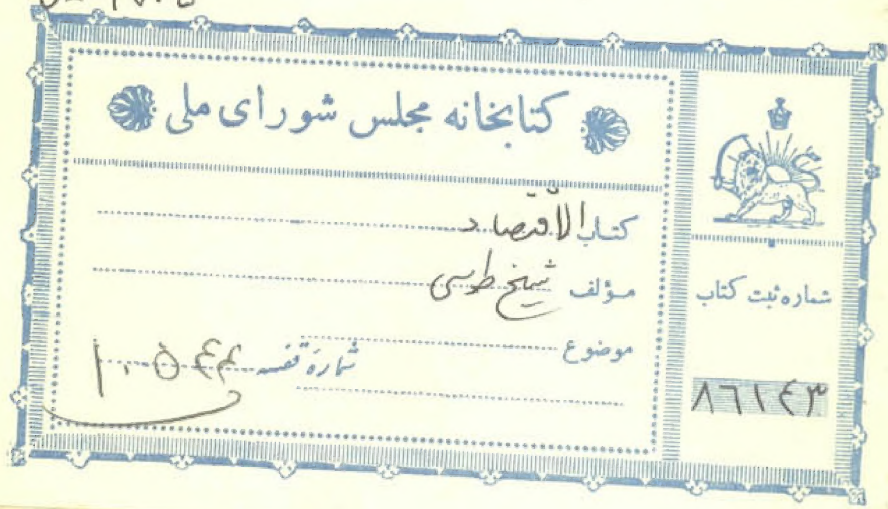 کتابخانه مجلس شورای ملی
کتاب الاقتصاد
مؤلف شیخ طوسی
موضوع
شمارهٔ قفسه
شماره ثبت کتاب
۸۶۱۴۳